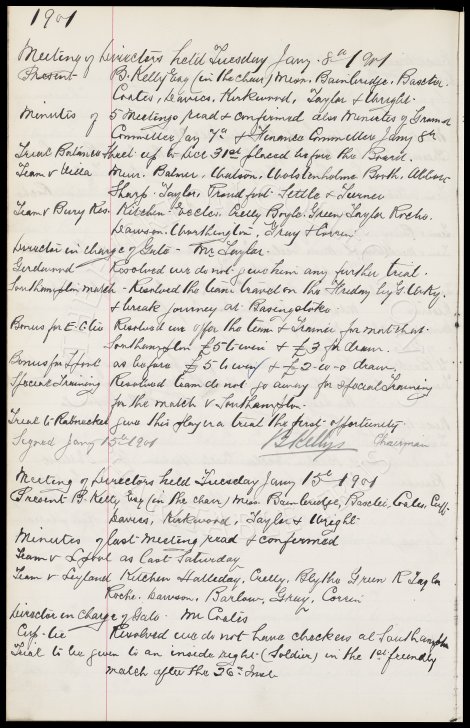 1901
Meeting of Directors held Tuesday Jany. 8th 1901
Present B. Kelly Esq (in the chair) Messrs. Bainbridge, Baxter,
Coates, Davies, Kirkwood, Taylor & Wright.
Minutes of 5 Meetings read & confirmed also Minutes of Ground
Committee Jany 7th & Finance Committee Jany 8th
Trial Balance Sheet up to Decr 31st placed before the Board.
Team v Villa Muir. Balmer, Watson, Wolstenholme Booth, Abbott
Sharp. Taylor, Proudfoot. Settle & Turner
Team v Bury Res. Kitchen Eccles, Crelly Boyle. Green, Taylor Roche.
Dawson. Worthington, Gray & Corrin
Director in charge of Gate - Mr Taylor.
Resolved we do not give him any further trial.
Southampton match - Resolved the team travel on the Friday by G. W. Ry.
& break journey at Basingstoke.
Bonus for E. C. tie Resolved we offer the team & Trainer for match at
Southampton £5 to win & £3 for draw.
Bonus for L'pool as before £5 to win & £2-10-0 draw
Special Training Resolved team do not go away for special Training
for the match v Southampton.
Trial to give this player a trial the first opportunity
Signed Jany 15th 1901 B Kelly Chairman
Meeting of Directors held Tuesday Jany 15th 1901
Present B. Kelly Esq (in the chair) Messrs Bainbridge, Baxter, Coates, Cuff.
Davies, Kirkwood, Taylor & Wright
Minutes of last meeting read & confirmed
Team v L'pool as last Saturday
Team v Leyland Kitchen Halleday, Crelly, Blythe Green R Taylor
Roche. Dawson, Barlow, Gray, Corrin
Director in Charge of Gate. Mr Coates
Cup-tie Resolved we do not have checkers at Southampton
Trial to be given to an inside right (Soldier) in the 1st friendly
match after the 26th Inst.